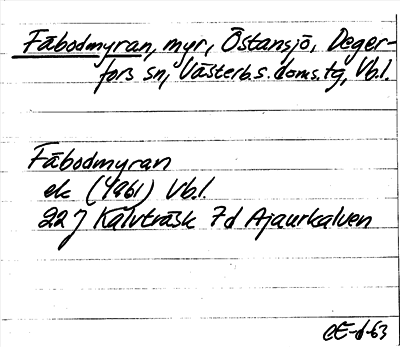 Fäbodmyran, myr, Östansjö, Deger-
fors sn, Västerb.s.doms.tg, Vb.l.
Fäbodmyran
ek (1961) Vb.l.
22 J Kalvträsk 7d Ajaurkalven
CE-d-63